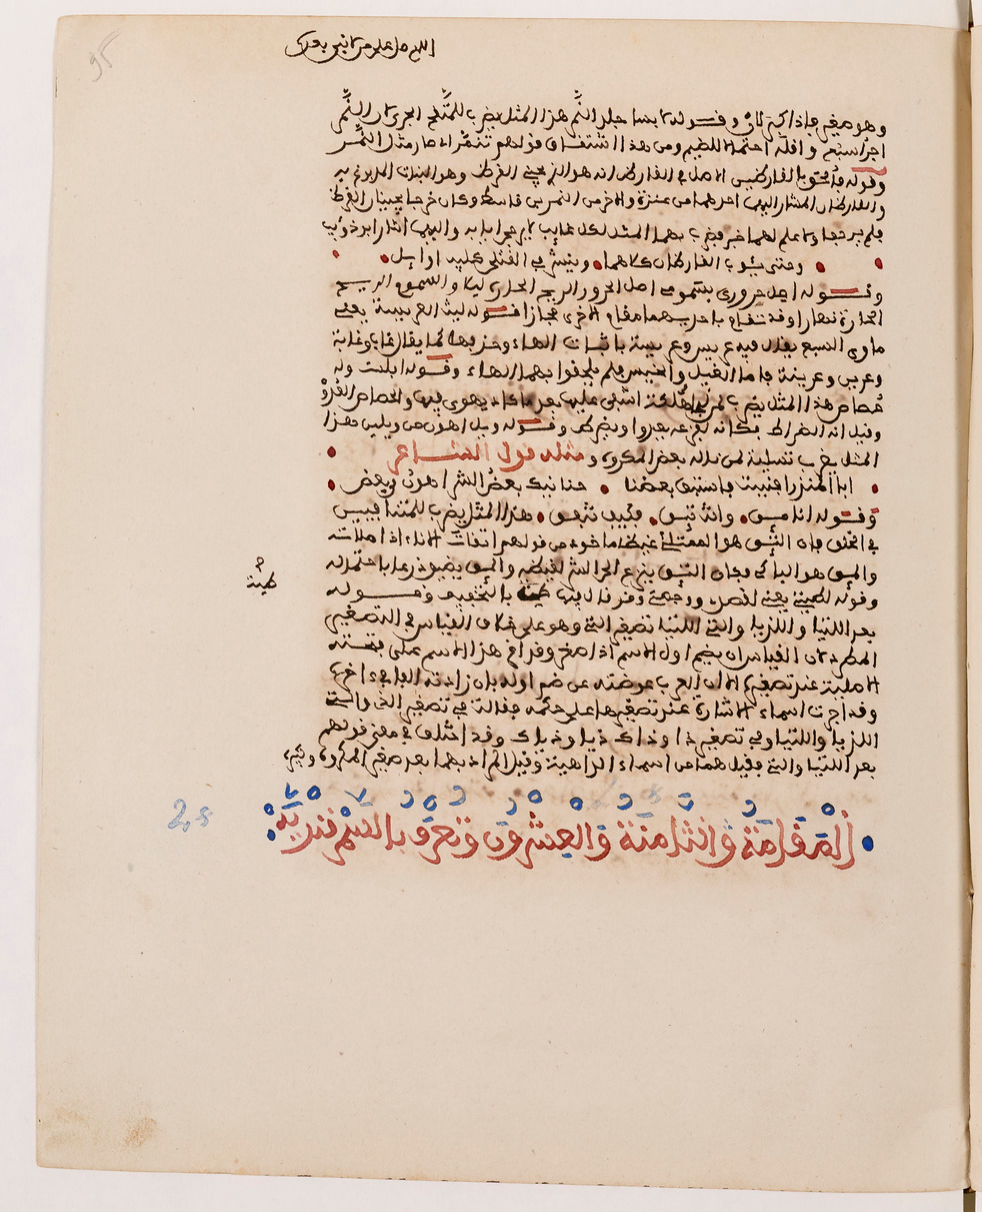 اللهم صل على من لا نبي بعده
95
وهو صغير فإذا كبر وقوله لابسا جلد النمر هذا المثل يضرب للمتكلم الجرى لان النمر
اجرأ سبع واقله احتمالا للضيم ومن هذا اشتقاق قولهم تنمر اذ صار مثل النمر
وقوله بالقارظين الاصل في القارظ انه هو الذي يجنى القرظ وهو النبات المدبوغ به
والقارظان المشار اليهما احدهما من عنزة والاخر من النمر بن قاسط وكان خرجا يجنيان القرظ
فلم يرجعا ولا علم لهما خبر فضرب بهما المثل لكل غايب لا يرجى ايابه واليهما اشار ابو ذؤيب
وحتى يئوب القارظان كلاهما وينشر في القتلى كليب لوايل
وقوله اصل الحرور الريح الحارة ليلا والسموم الريح
الحارة نهارا وقد تقام احديهما مقام الاخرى مجازا قوله ليث العريسة يعنى
ماوى السبع يقال فيه عريس وعريسة باثبات الهاء وحذفها كما يقال غاب وغابة
وعرين وعرينة فاما الغيل والخيس فلم يلحقوا بهما الهاء وقوله افلت وله
حصاص هذا المثل يضرب لمن نجا من هلكة اشفى عليها بعد ما كاد يهوى فيها والحصاص العدو
وقيل انه الضراط فكانه لفزعه يعدوا ويضرط وقوله ويل اهون من ويلين هذا
المثل يضرب تسلية لمن ناله بعض المكروه ومثله قول الشاعر
ابا المنذر افنيت فاستبق بعضنا حنانيك بعض الشر اهون من بعض
وقوله انا وانت تئق فكيف نتفق هذا المثل يضرب للمتنافيين
في الخلق فان التئق هو الممتلئ غيظا ماخوذ من قولهم اتئقت الاناء اذا ملاته
والمئق هو الباكى فكان التئق ينزع الى الشر لغيظه والمئق يضيق ذرعا باحتماله
وقوله لطيته يعنى لقصده ووجهته وقد قال فيها طية بالتخفيف وقوله
طية
بعد اللتيا والتي اللتيا تصغير التي وهو على خلاف القياس في التصغير
المطرد لان القياس ان يضم اول الاسم اذا صغر وقد اقر هذا الاسم على فتحته
الاصلية عند تصغيره الا ان العرب عوضته عن ضم اوله بان زادت الفا في اخره
وقد اجرت اسماء الاشارة عند تصغيرها على حكمه فقالت في تصغير الذي والتي
اللذيا واللتيا وفي تصغير ذا وذاك ذيا وذياك وقد اختلف في معنى قولهم
بعد اللتيا والتي فقيل هما من اسماء الداهية وقيل المراد بهما بعد صغير المكروه وكبيره
المقامة الثامنة والعشرون وتعرف بالسمرقندية
28